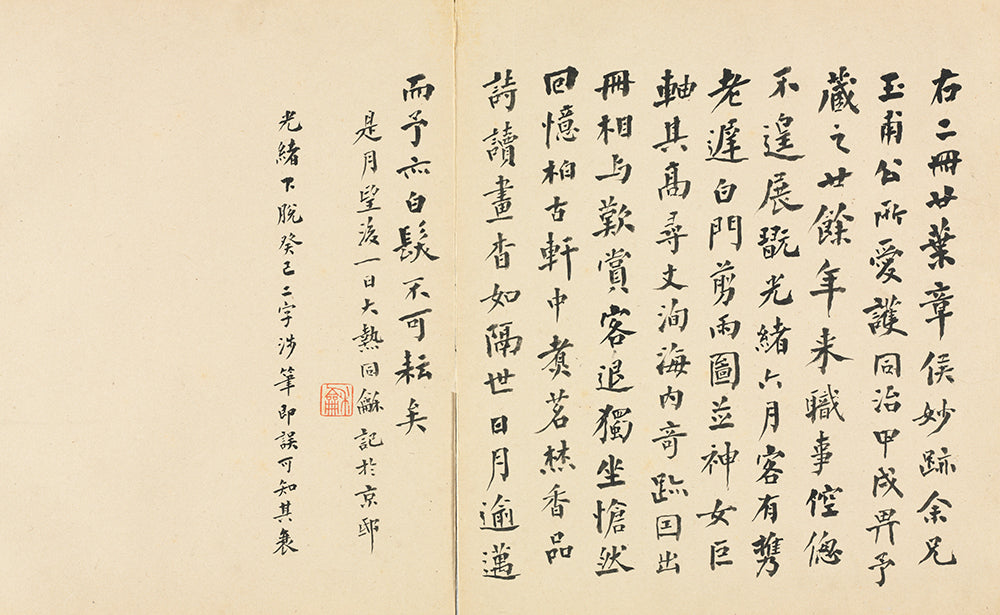 右二冊廿葉章侯妙跡余兄
玉甫公所愛護同治甲戌畀予
藏之廿餘年来職事倥傯
不遑展翫光緒六月客有攜
老遲白門剪雨圖並神女巨
軸其高尋丈洵海内奇跡因出
冊相与歎賞客退獨坐愴然
回憶柏古軒中煮茗焚香品
詩讀畫杳如隔世日月逾邁
而予亦白髮不可耘矣
是月望後一日大熱同龢記於京邸
光緒下脫癸巳二字涉筆即誤可知其衰